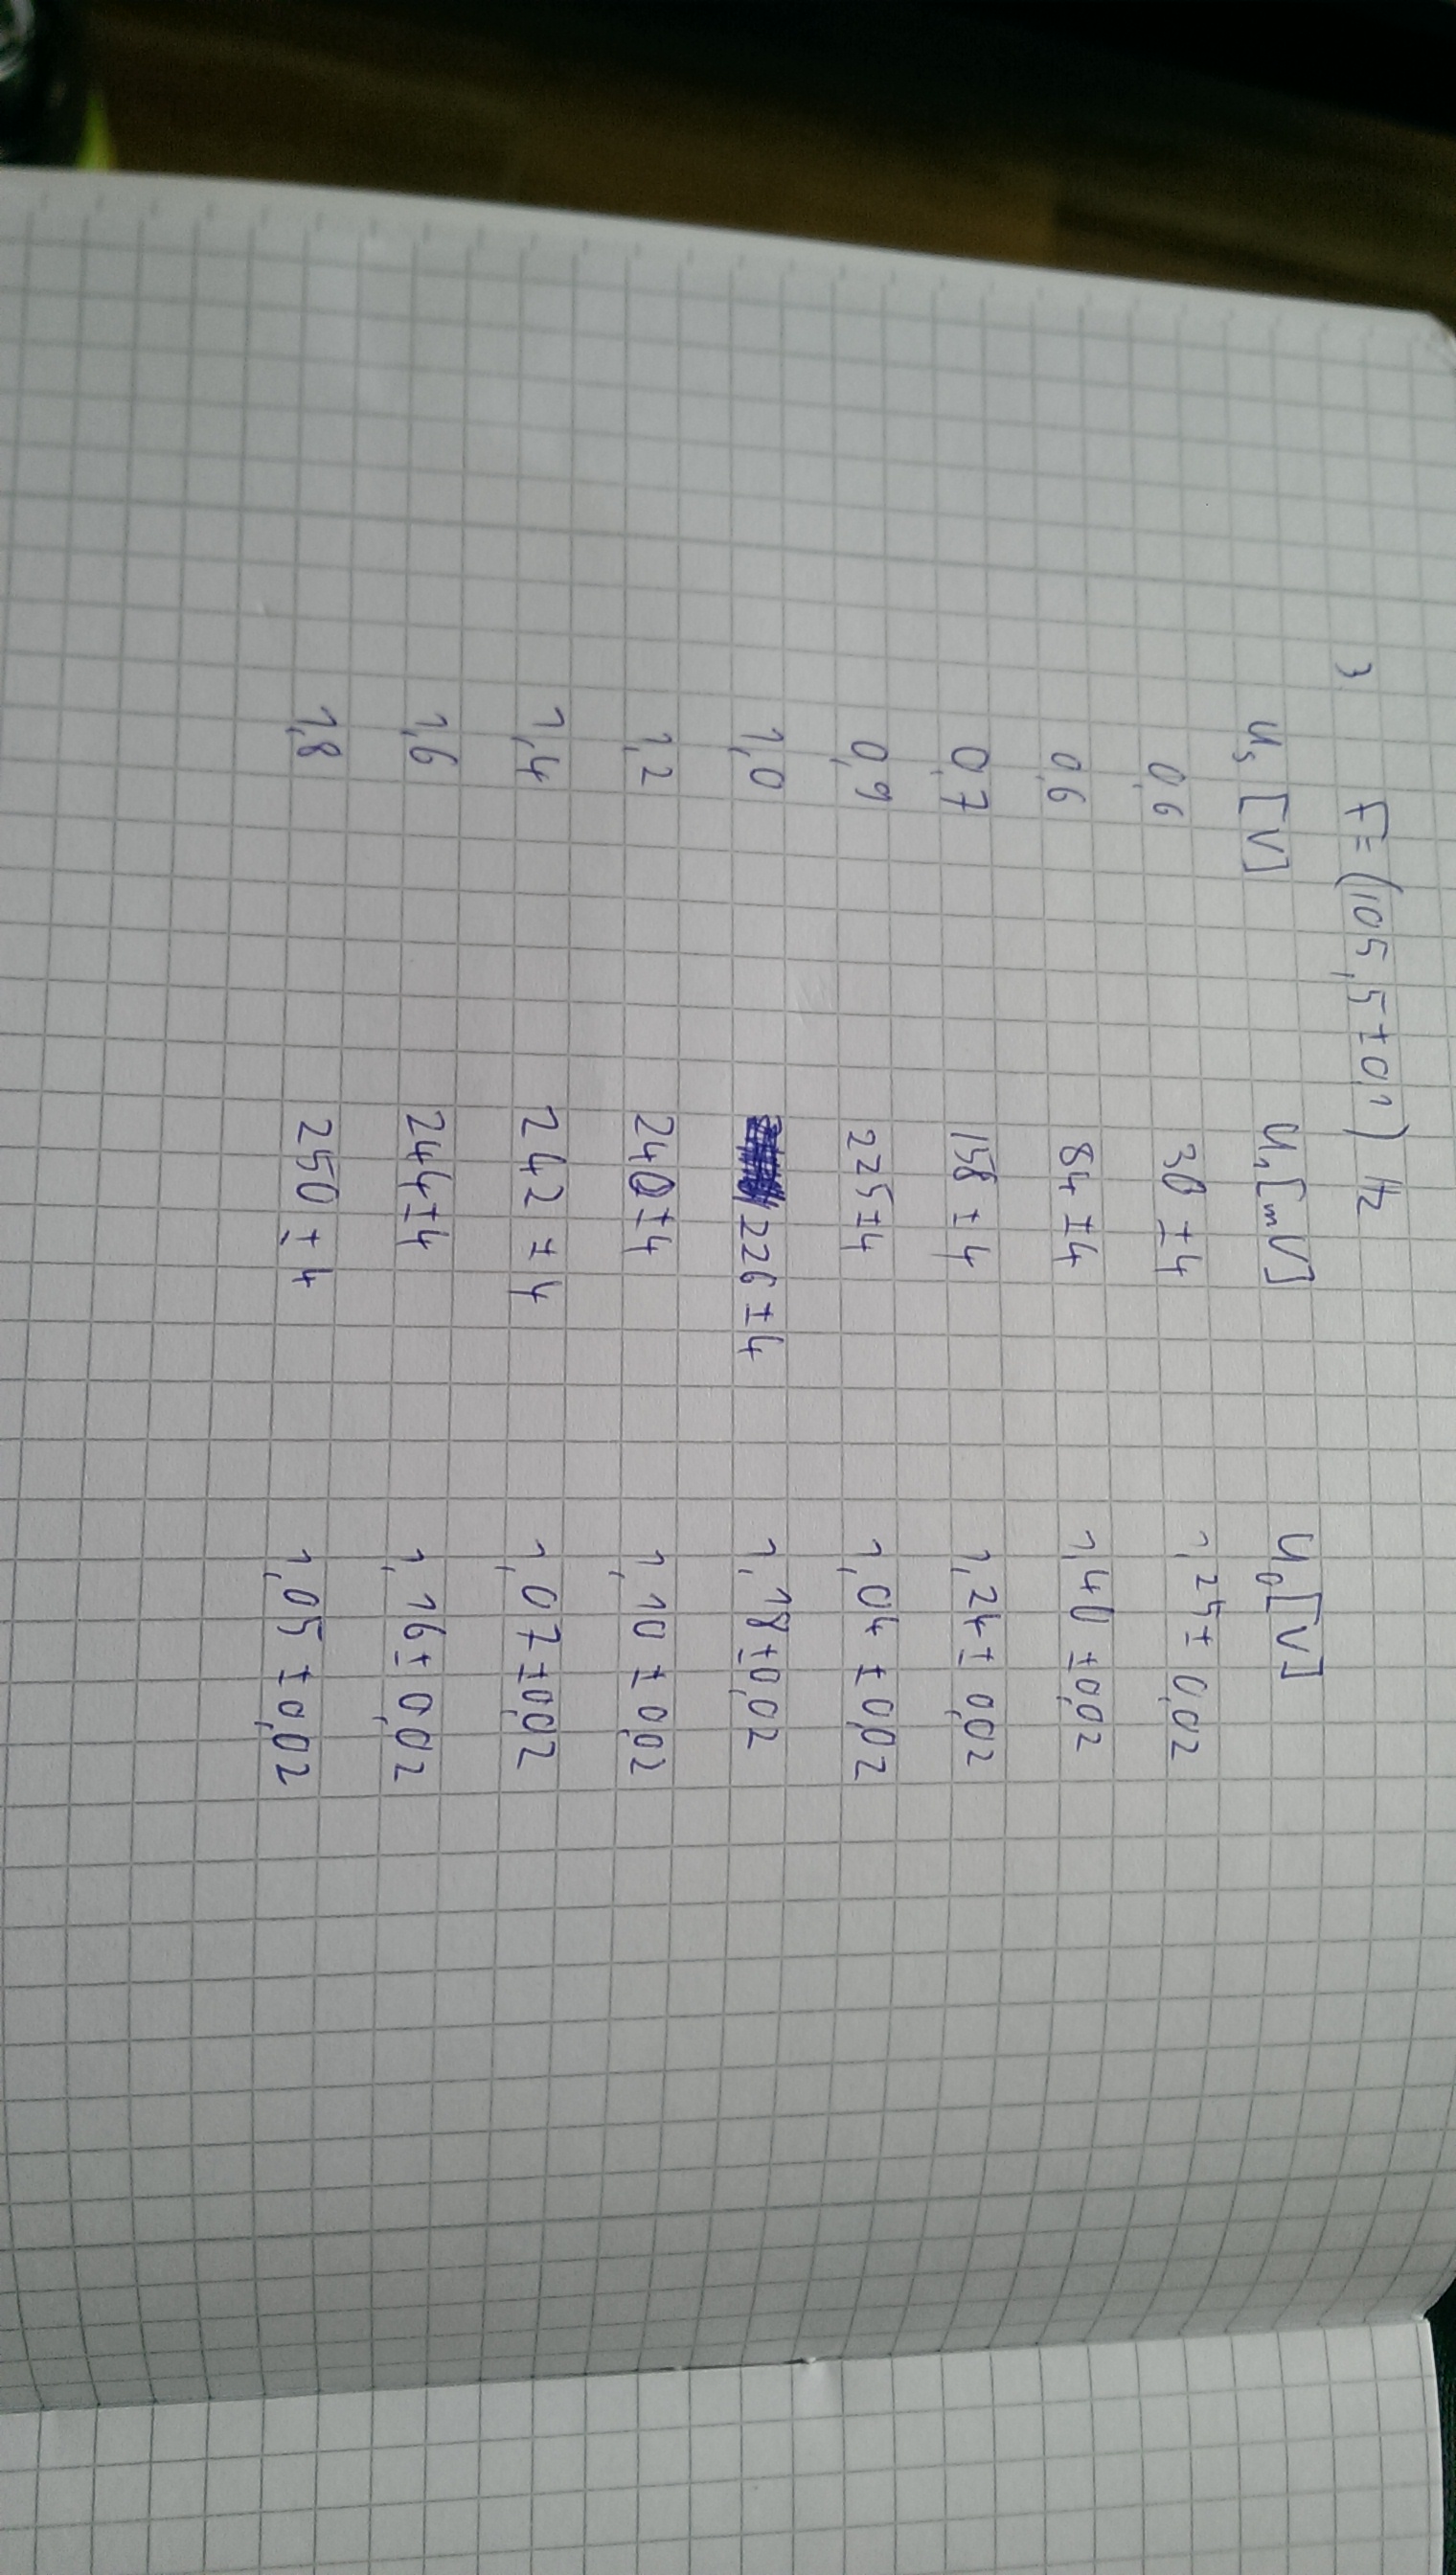 3. F=(105,5±0,1) Hz
U₅ [V] U₁[mV] U₀[V]
0,6 30 ±4 1,25± 0,02
0,6 84 ±4 1,40 ±0,02
0,7 158 ±4 1,24± 0,02
0,9 225±4 1,04 ±0,02
1,0 226±4 1,18±0,02
1,2 240±4 1,10 ±0,02
1,4 242 ±4 1,07±0,02
1,6 244±4 1,16±0,02
1,8 250±4 1,05 ±0,02